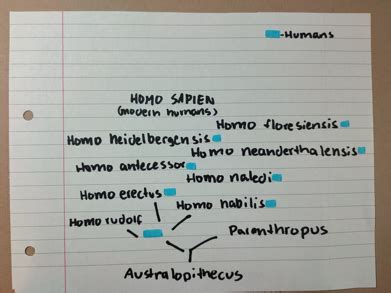 -Humans
HOMO SAPIEN
(modern humans)
Homo floresiensis
Homo heidelbergensis
Homo neanderthalensis
Homo antecessor
Homo naledi
Homo erectus
Homo habilis
Homo rudolf
Paranthropus
Australopithecus